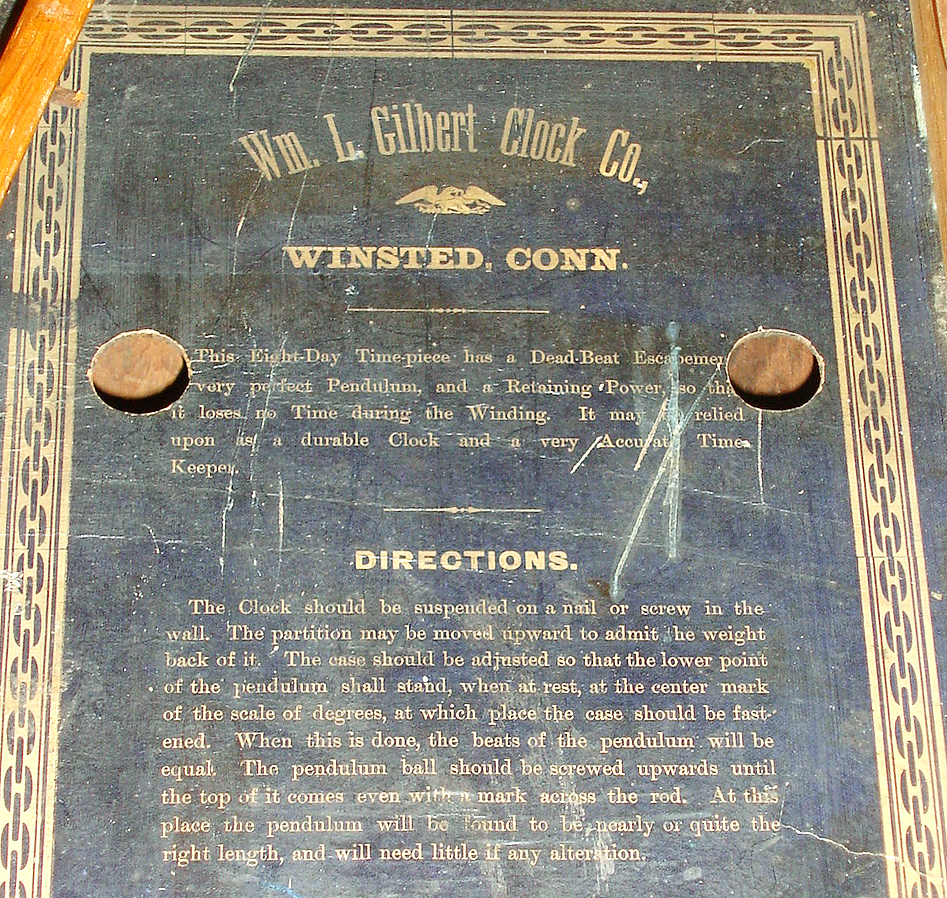 Wm. L. Gilbert Clock Co.,
WINSTED, CONN.
This Eight-Day Time-piece has a Dead-Beat Escapemen
very perfect Pendulum, and a Retaining Power, so tha
it loses no Time during the Winding. It may be relied
upon as a durable Clock and a very Accurate Time
Keeper.
DIRECTIONS.
The Clock should be suspended on a nail or screw in the
wall. The partition may be moved upward to admit he weight
back of it. The case should be adjusted so that the lower point
of the pendulum shall stand, when at rest, at the center mark
of the scale of degrees, at which place the case should be fast-
ened. When this is done, the beats of the pendulum will be
equal. The pendulum ball should be screwed upwards until
the top of it comes even with a mark across the rod. At this
place the pendulum will be found to be nearly or quite the
right length, and will need little if any alteration.